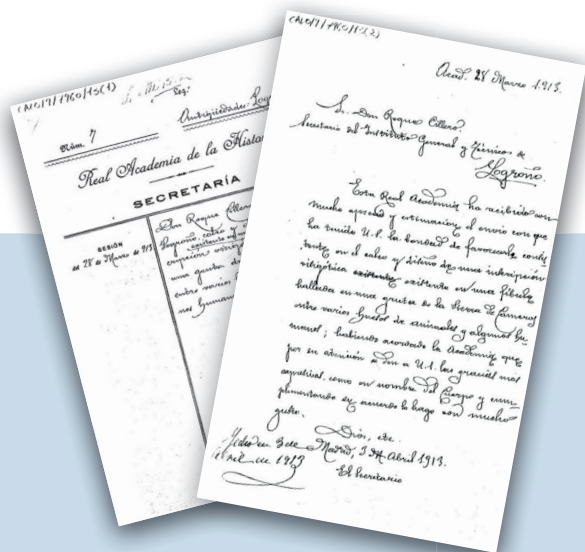 CALO/7/7960/15(1)
Antigüedades Logro
Núm. 7
Real Academia de la Histo
SECRETARÍA
SESIÓN
del 28 de Marzo de 913
Don Roque Cillero
Logroño,
existente
una gruta de
entre varios
sos humano
CALO/7/7960/15(2)
Acad. 28 Marzo 1913.
S. Don Roque Cillero.
Secretario del Instituto General y Técnico de
Logroño.
Esta Real Academia ha recibido con
mucho aprecio y estimación el envío con que
ha tenido U.S. la bondad de favorecerla, consis
tente en el calco y dibujo de una inscripción
visigótica existente existente en una fíbula
hallada en una gruta de la Sierra de Cameros
entre varios huesos de animales y algunos hu-
manos; habiendo acordado la Academia que
por su atención se den a U.S. las gracias mas
expresivas, como en nombre del Cuerpo y cum-
plimentando su acuerdo lo hago con mucho
gusto.
Dios, etc.
Madrid, 3 de Abril 1913.
El Secretario
Fecho en 3 de
Abril de 1913